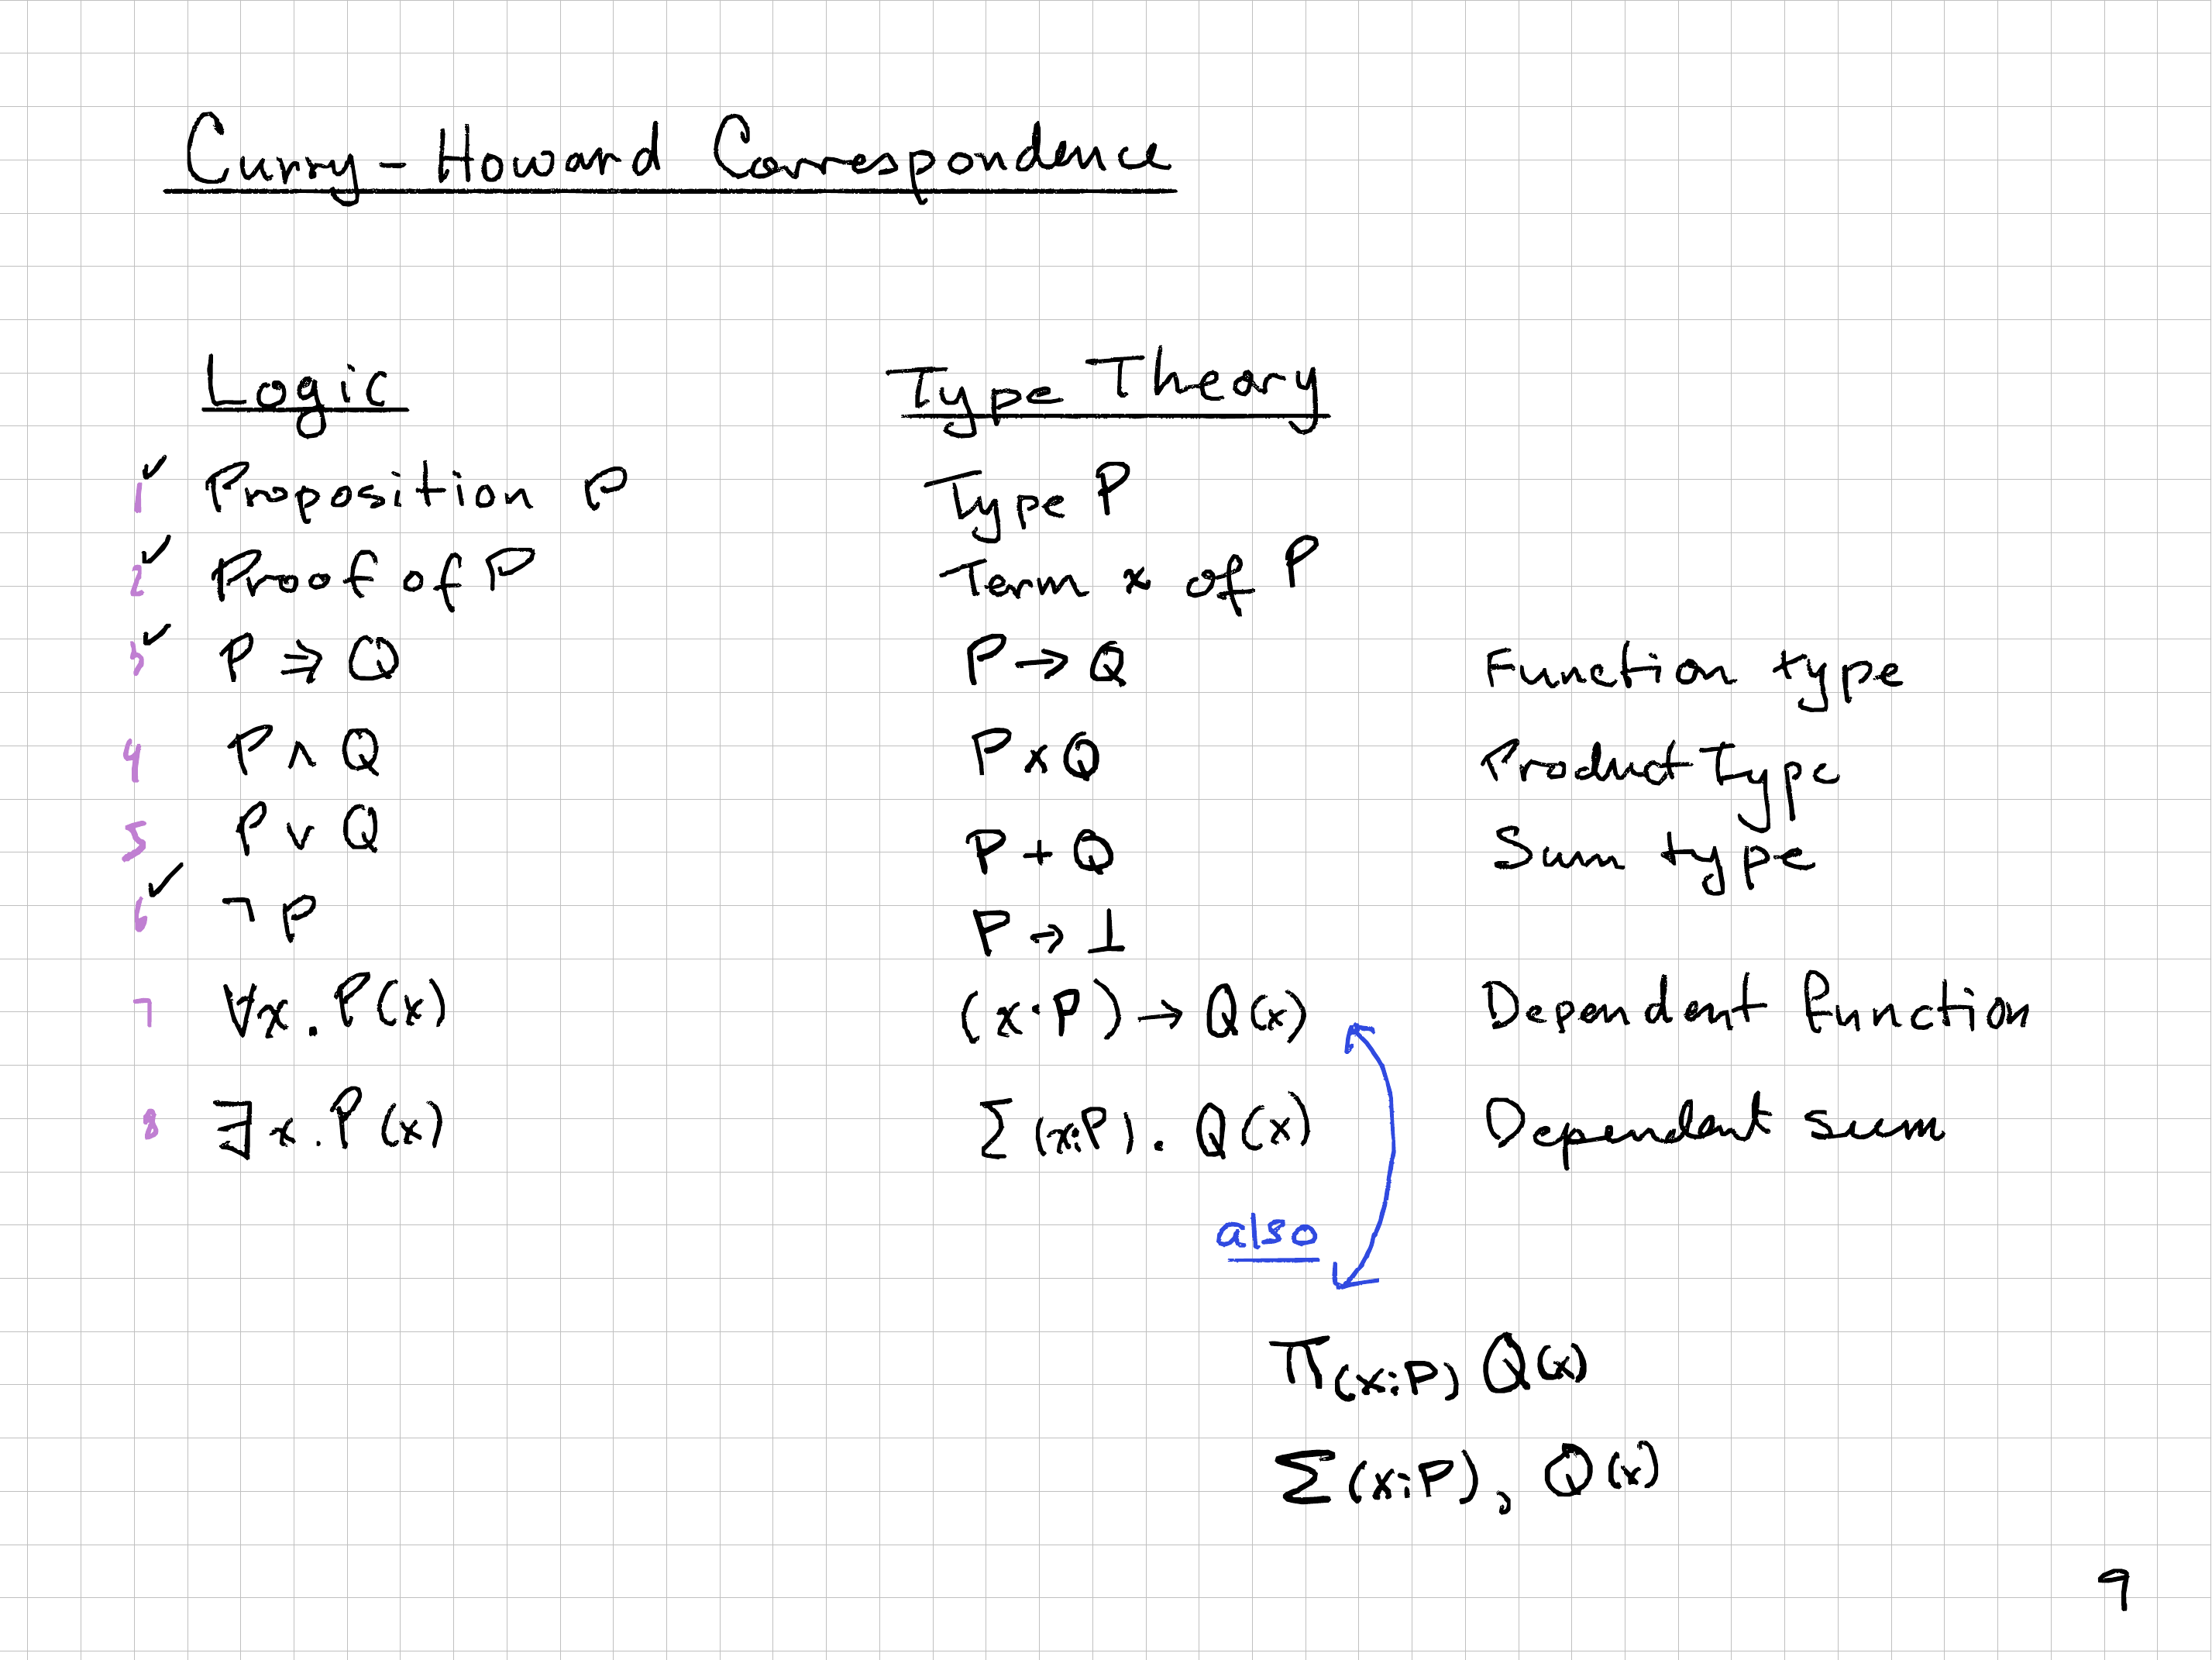 Curry-Howard Correspondence
Logic Type Theory
1 ✓ Proposition P Type P
2 ✓ Proof of P Term x of P
3 ✓ P ⇒ Q P → Q Function type
4 P ∧ Q P x Q Product Type
5 P ∨ Q P + Q Sum type
6 ✓ ¬ P P → ⊥
7 ∀x. P(x) (x:P) → Q(x) Dependent Function
8 ∃x. P(x) Σ(x:P). Q(x) Dependent sum
also
Π(x:P) Q(x)
Σ(x:P), Q(x)
9